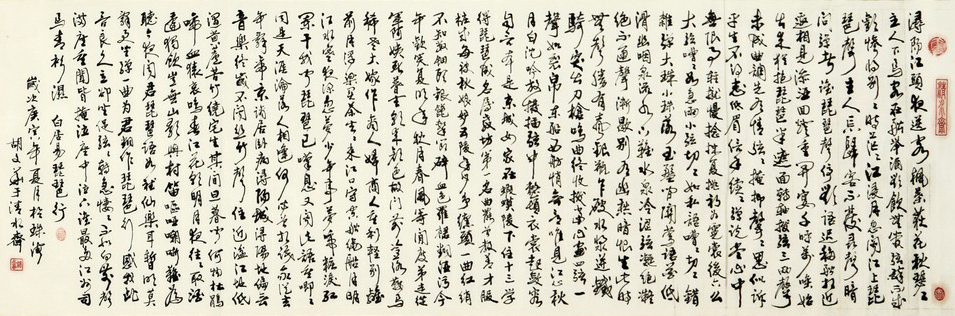 潯陽江頭夜送客楓葉荻花秋瑟瑟
主人下馬客在船舉酒欲飲無管絃醉不成
歡慘將別別時茫茫江浸月忽聞江上琵
琶聲主人忘歸客不發尋聲暗
問彈者誰琵琶聲停欲語遲移船相近
邀相見添酒回燈重開宴千呼萬喚始
出來猶抱琵琶半遮面轉軸撥絃三兩聲
未成曲調先有情絃絃掩抑聲聲思似訴
平生不得志低眉信手續續彈說盡心中
無限事輕攏慢撚抹復挑初為霓裳後六么
大絃嘈嘈如急雨小絃切切如私語嘈嘈切切錯
雜彈大珠小珠落玉盤間關鶯語花底
滑幽咽泉流水下灘水泉冷澀弦凝絕凝
絕不通聲漸歇別有幽愁暗恨生此時
無聲勝有聲銀瓶乍破水漿迸鐵
騎突出刀槍鳴曲終收撥當心畫四弦一
聲如裂帛東船西舫悄無言唯見江心秋
月白沉吟放撥插弦中整頓衣裳起斂容
自言本是京城女家在蝦蟆陵下住十三學
得琵琶成名屬教坊第一部曲罷曾教善才服
妝成每被秋娘妒五陵年少爭纏頭一曲紅綃
不知數鈿頭銀篦擊節碎血色羅裙翻酒污今
年歡笑復明年秋月春風等閒度弟走從
軍阿姨死暮去朝來顏色故門前冷落鞍馬
稀老大嫁作商人婦商人重利輕別離
前月浮梁買茶去去來江口守空船繞船明月
江水寒夜深忽夢少年事夢啼妝淚紅
闌干我聞琵琶已嘆息又聞此語重唧唧
同是天涯淪落人相逢何必曾相識我從去
年辭帝京謫居臥病潯陽城潯陽地僻無
音樂終歲不聞絲竹聲住近湓江地低
濕黃蘆苦竹繞宅生其間旦暮聞何物杜鵑
啼血猿哀鳴春江花朝秋月夜往往取酒
還獨傾豈無山歌與村笛嘔啞嘲哳難為
聽今夜聞君琵琶語如聽仙樂耳暫明莫
辭更坐彈一曲為君翻作琵琶行感我此
言良久立卻坐促弦弦轉急淒淒不似向前聲
滿座重聞皆掩泣座中泣下誰最多江州司
馬青衫濕 白居易琵琶行
歲次庚寅年夏月於珠海